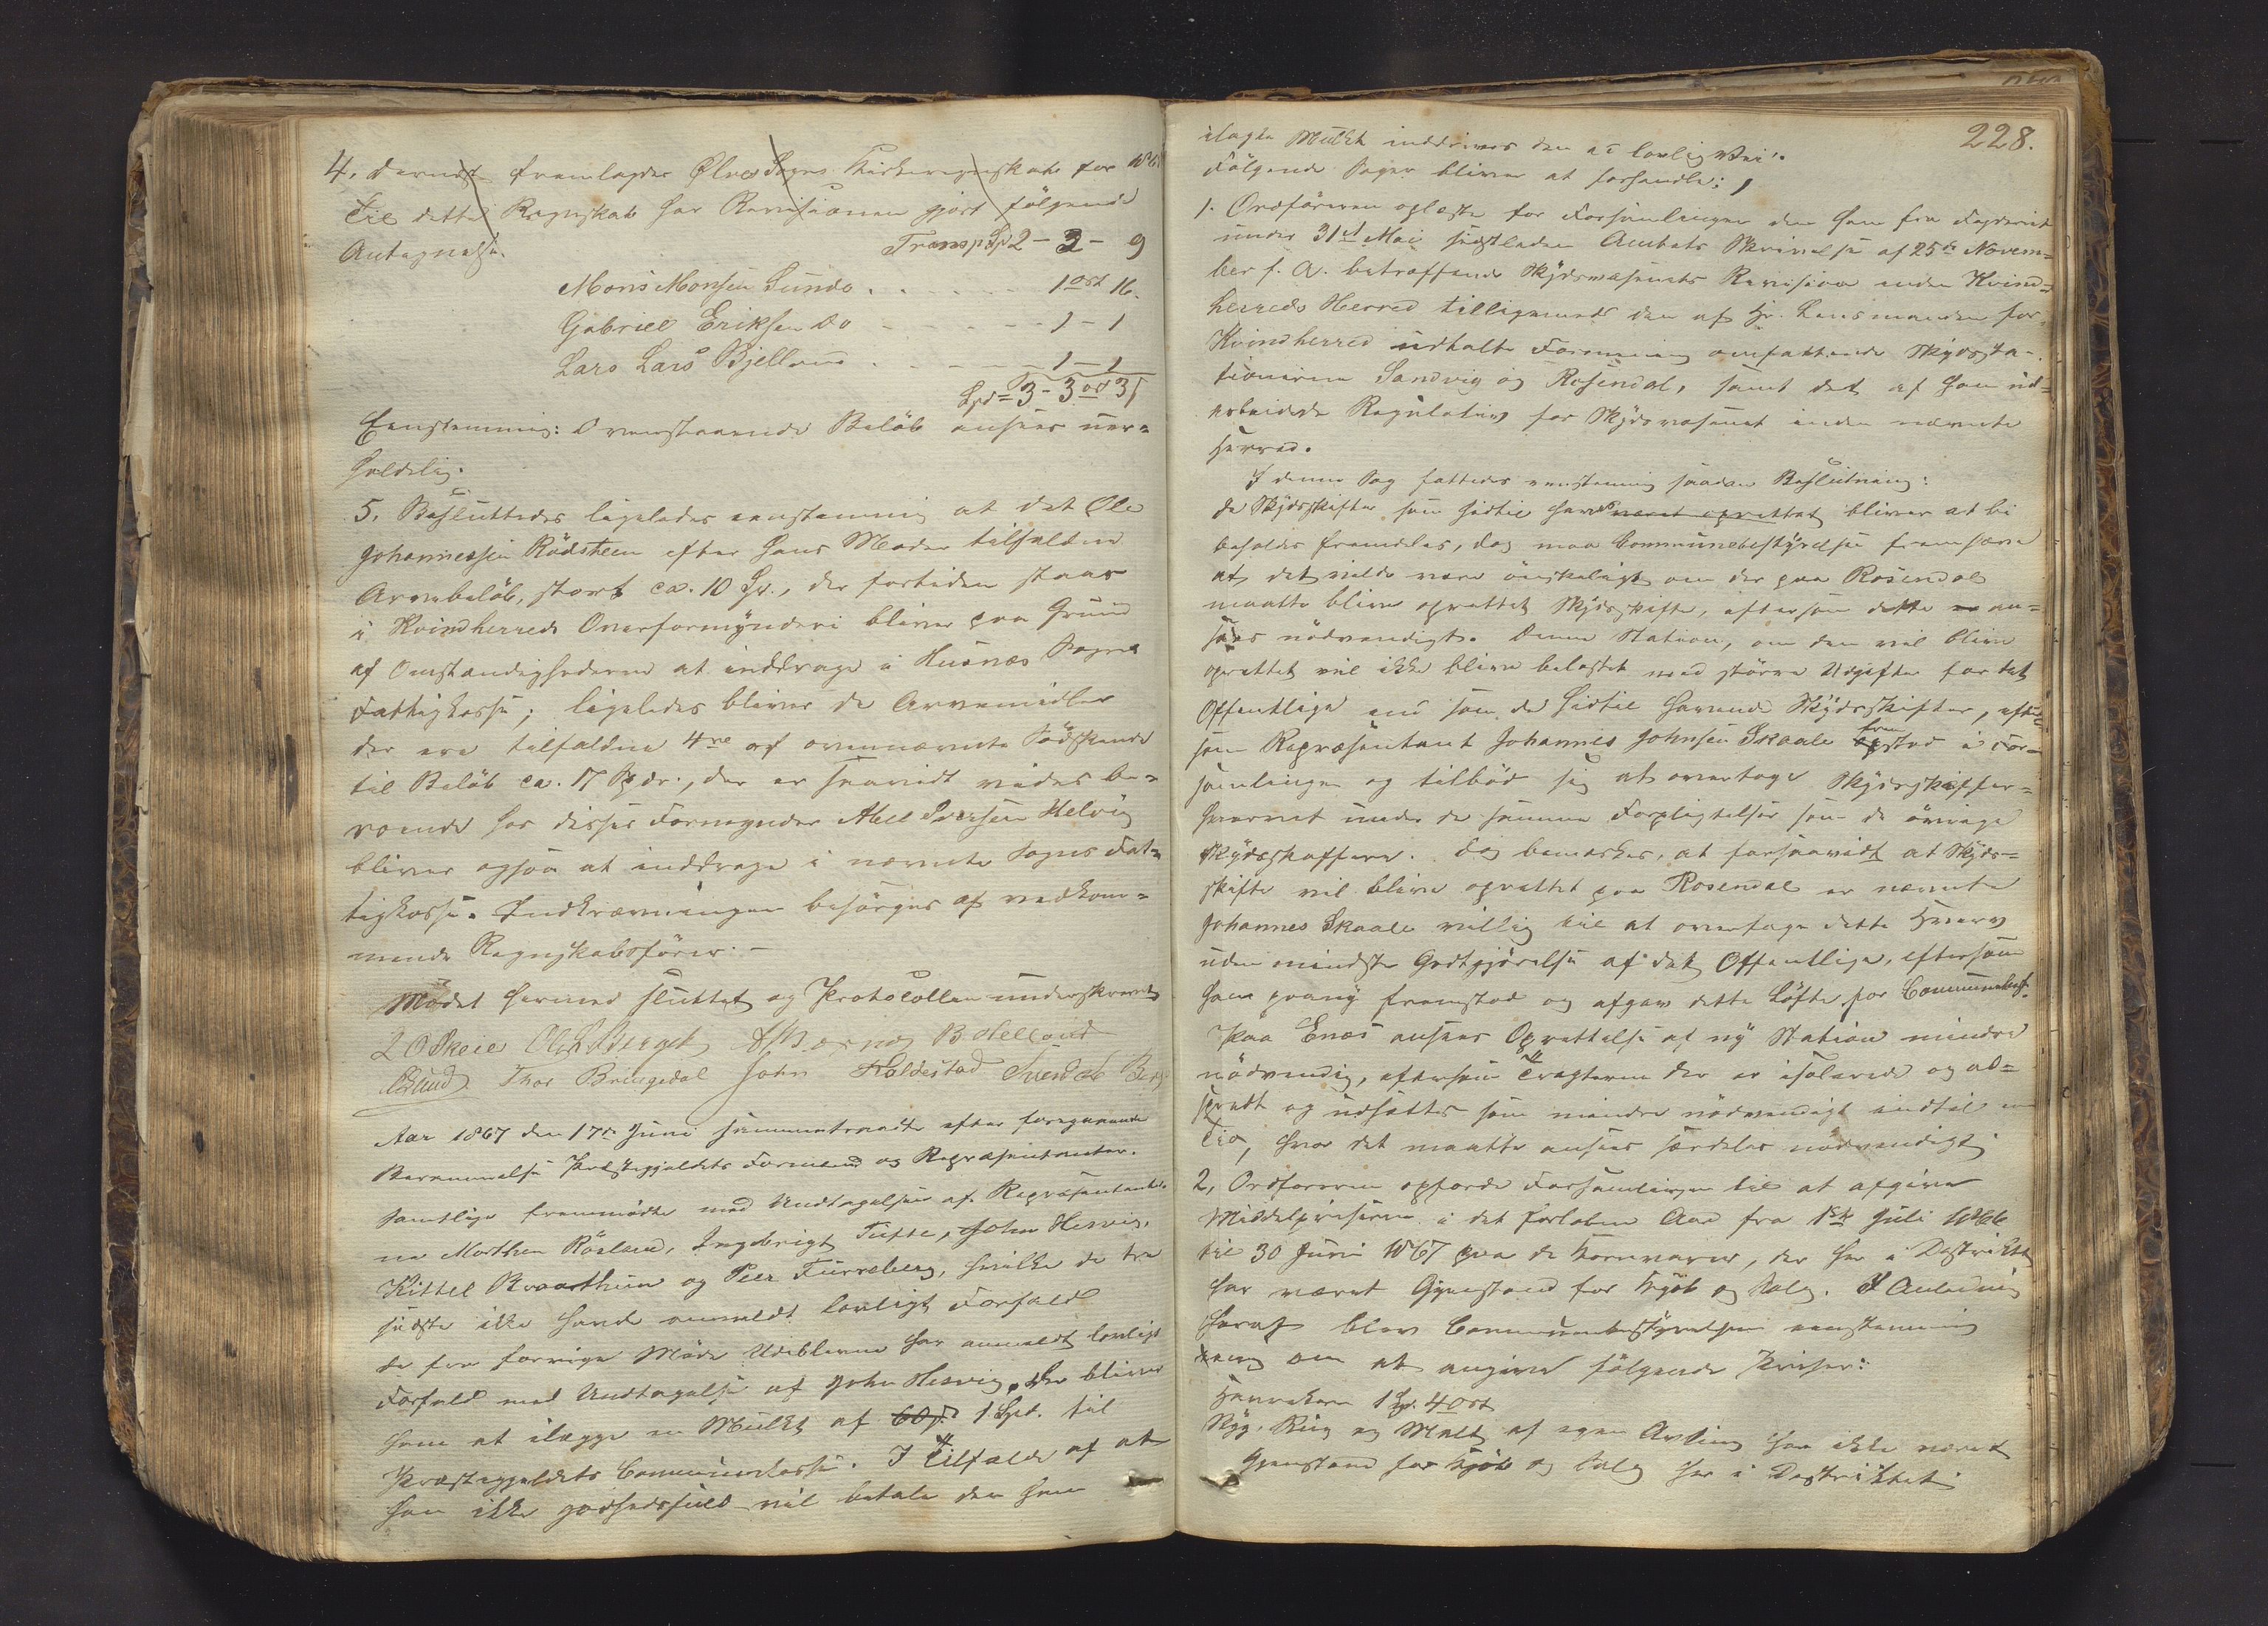 4. Dernæst fremlagdes Ølves Sogns Kirkeregnskab for
Til dette Regnskab har Revisionen gjort følgende
Antegnelse. Transp Sp 2 - 3 - 9
Mons Monsen Sundo . . . . . 1 ort 16.
Gabriel Eriksen do - - - - - 1 - 1
Lars Lars Bjelland . . . . 1 - 1
Spd = 3 - 3 ort 3
Eenstemmig: Ovenstaaende Beløb ansees uer=
holdelig.
5. Besluttedes ligeledes eenstemmig at det Ole
Johannessen Rödsteen efter hans Moder tilfaldne
Arvebeløb, stort ca. 10 Sp., der fortiden staar
i Kvindherreds Overformynderi bliver paa Grund
af Omstændighederne at inddrage i Husnæs Sogns
Fattigkasse; ligeledes bliver de Arvemidler
der ere tilfaldne 4re af ovennævnte Södskende
til Beløb ca. 17 Spdr., der er saavidt vides be=
roende hos disses Formynder Abel Iversen Helvig
bliver ogsaa at inddrage i nævnte Sogns Fat=
tigkasse. Indkrævningen besörges af vedkom=
mende Regnskabsförer. -
Mödet hermed sluttet og Protocollen underskrevet
L O Skeie B Helland
Thor Bringedal John Koldestad Svend
Aar 1867 den 17de Juni sammentraadte efter foregaaende
Berammelse Præstegjeldets Formænd og Repræsentanter.
Samtlige fremmödte med Undtagelse af Repræsentanter=
ne Morthen Röeland, Ingebrigt Tufte, John Hesvig,
Kittel Braathun og Peer Furreberg, hvilke de tre
sidste ikke havde anmeldt lovligt Forfald
De fra forrige Möde Udeblevne har anmeldt lovligt
Forfald med Undtagelse af John Hesvig, der bliver
ham at ilægge en Mulkt af 60 s 1 Spd. til
Præstegjeldets Communekasse. I Tilfælde af at
han ikke godhedsfuld vil betale den ham
228.
ilagte Mulkt inddrives den ad lovlig Vei.
Fölgende Sager bliver at forhandle:
1. Ordföreren oplæste for Forsamlingen den ham fra Fogderiet
under 31te Mai sidstleden Ambets Skrivelse af 25de Novem=
ber f. A. betræffende Skydsvæsenets Revision inden Kvind=
herreds Herred tilligemed den af Hr. Lensmanden for
Kvindherred udtalte Formening omfattende Skydssta=
tionerne Sandvig og Rosendal, samt det af ham ud=
arbeidede Regulativ for Skydsvæsenet inden nævnte
Herred.
I denne Sag fattedes eenstemmig saadan Beslutning:
De Skydsskifter som hidtil have været oprettet bliver at bi
beholdes fremdeles, dog maa Communebestyrelsen fremhæve
at det vilde være ønskeligt om der paa Rosendal
maatte blive oprettet Skydsskifte, eftersom dette an=
sees nödvendigt. Denne Station, om den vel blive
oprettet vil ikke blive belastet med större Udgifter for det
Offentlige end som de hidtil havende Skydsskifter, efter
som Repræsentant Johannes Johnsen Skaale frem stod i For=
samlingen og tilböd sig at overtage Skydsskaffer=
hvervet under de samme Forpligtelser som de övrige
Skydsskaffere. Dog bemærkes, at forsaavidt at Skyds=
skifte vil blive oprettet paa Rosendal er nævnte
Johannes Skaale villig til at overtage dette Hverv
uden mindste Godtgjörelse af det Offentlige, eftersom
han paany fremstod og afgav dette Löfte for Communebest.
Paa Enæs ansees Oprettelse af ny Station mindre
nödvendig, eftersom Tragterne der er isolerede og ad=
spredt og udsættes som mindre nödvendigt indtil en
Tid, hvor det maatte ansees særdeles nödvendigt.
2, Ordføreren opfordre Forsamlingen til at afgive
Middelpriserne i det forløbne Aar fra 1ste Juli 1866
til 30 Juni 1867 paa de Kornvarer, der her i Distriktet
har været Gjenstand for Kjøb og Salg. I Anledning
heraf blev Communebestyrelsen eenstemmig
enig om at angive fölgende Priser:
Havrekorn 1 Sp. 4 ort
Byg, Rug og Malt af egen Avling har ikke været
Gjenstand for Kjøb og Salg her i Distriktet.